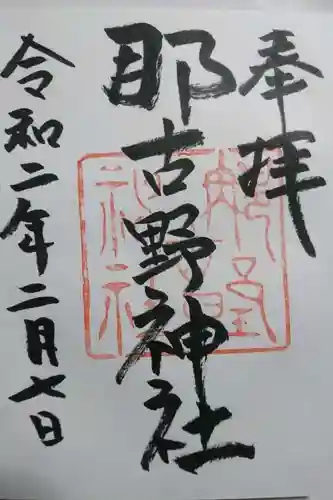 奉拝
那古野神社
令和二年二月七日